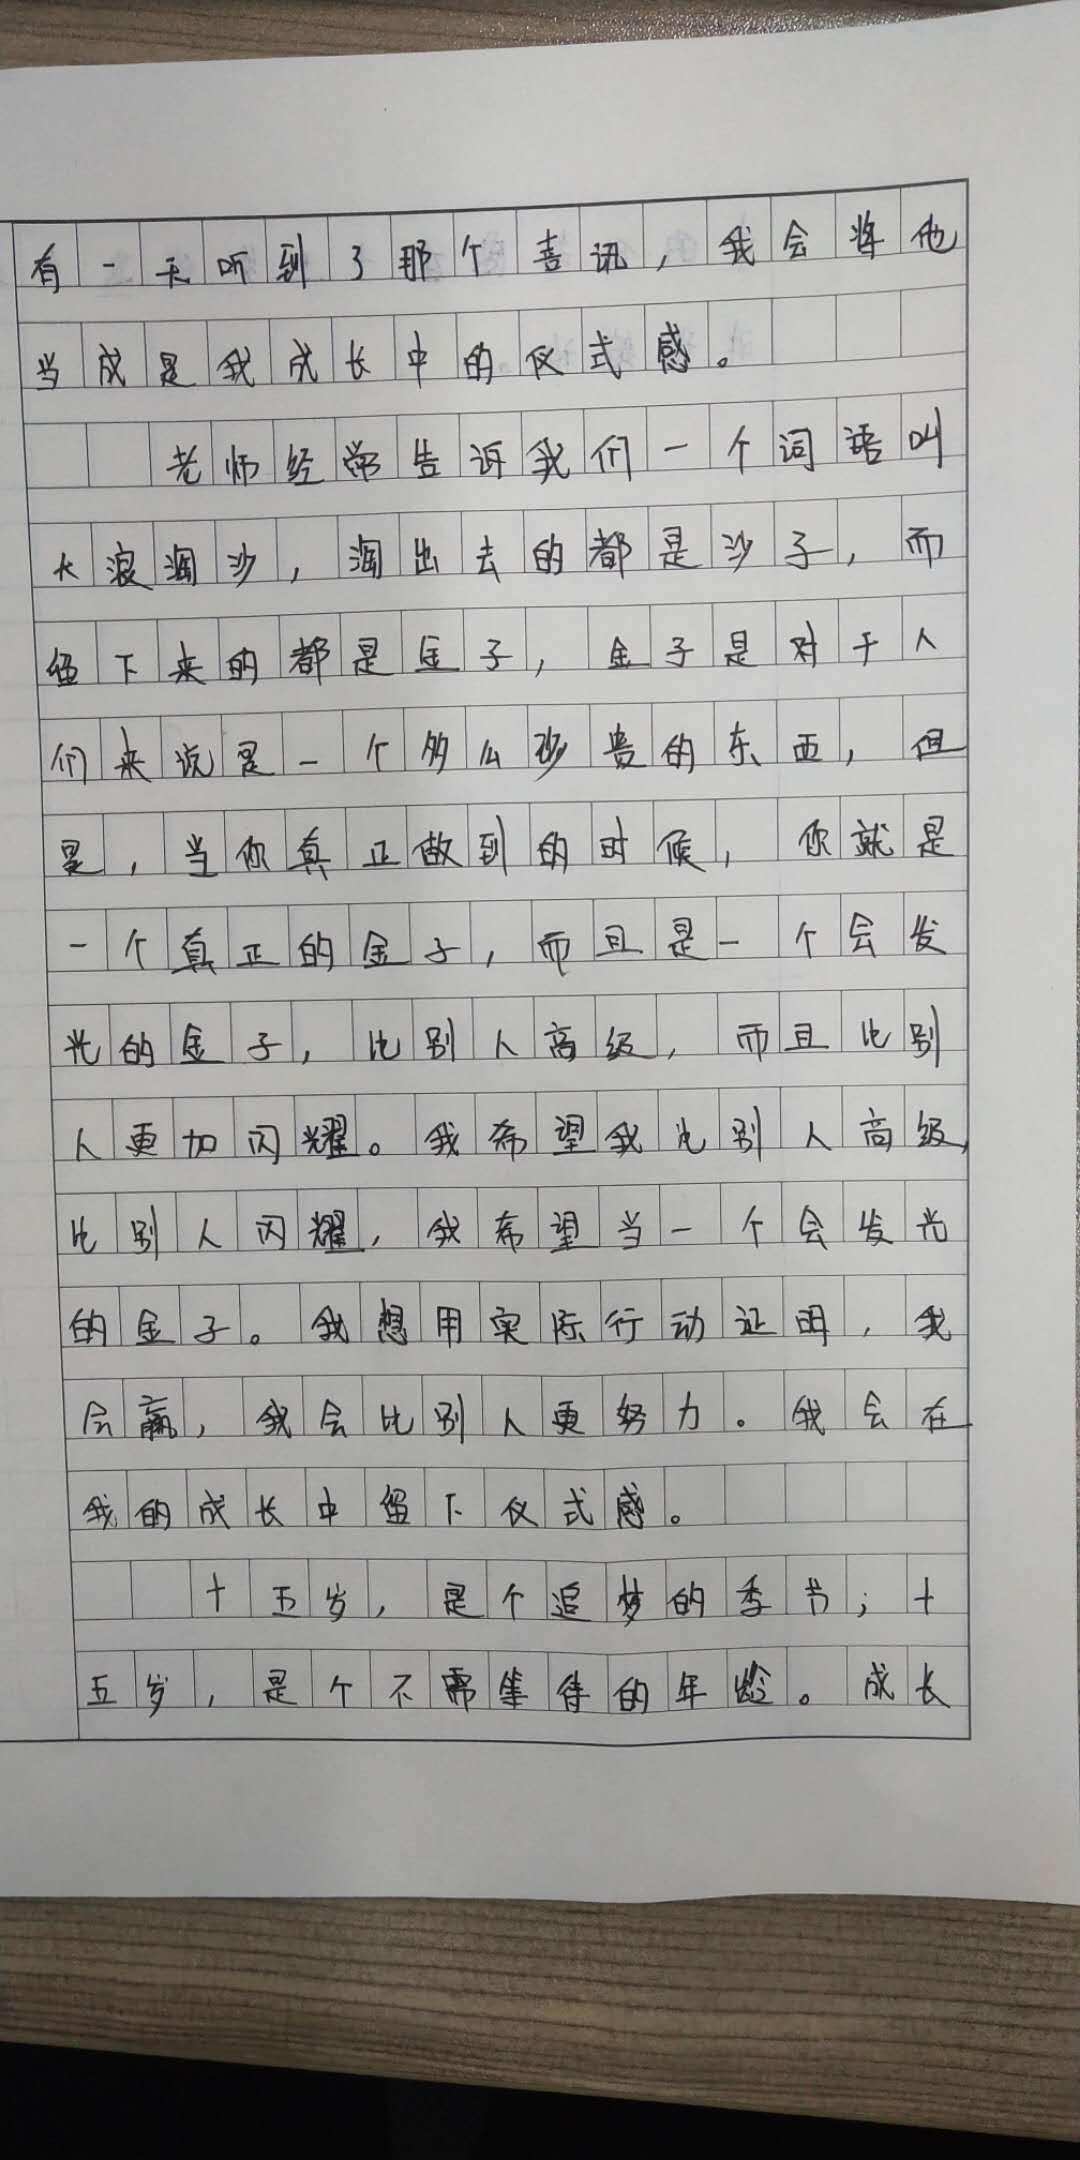 有一天听到了那个喜讯，我会将他
当成是我成长中的仪式感。
老师经常告诉我们一个词语叫
大浪淘沙，淘出去的都是沙子，而
留下来的都是金子，金子是对于人
们来说是一个多么珍贵的东西，但
是，当你真正做到的时候，你就是
一个真正的金子，而且是一个会发
光的金子，比别人高级，而且比别
人更加闪耀。我希望我比别人高级，
比别人闪耀，我希望当一个会发光
的金子。我想用实际行动证明，我
会赢，我会比别人更努力。我会在
我的成长中留下仪式感。
十五岁，是个追梦的季节；十
五岁，是个不需等待的年龄。成长